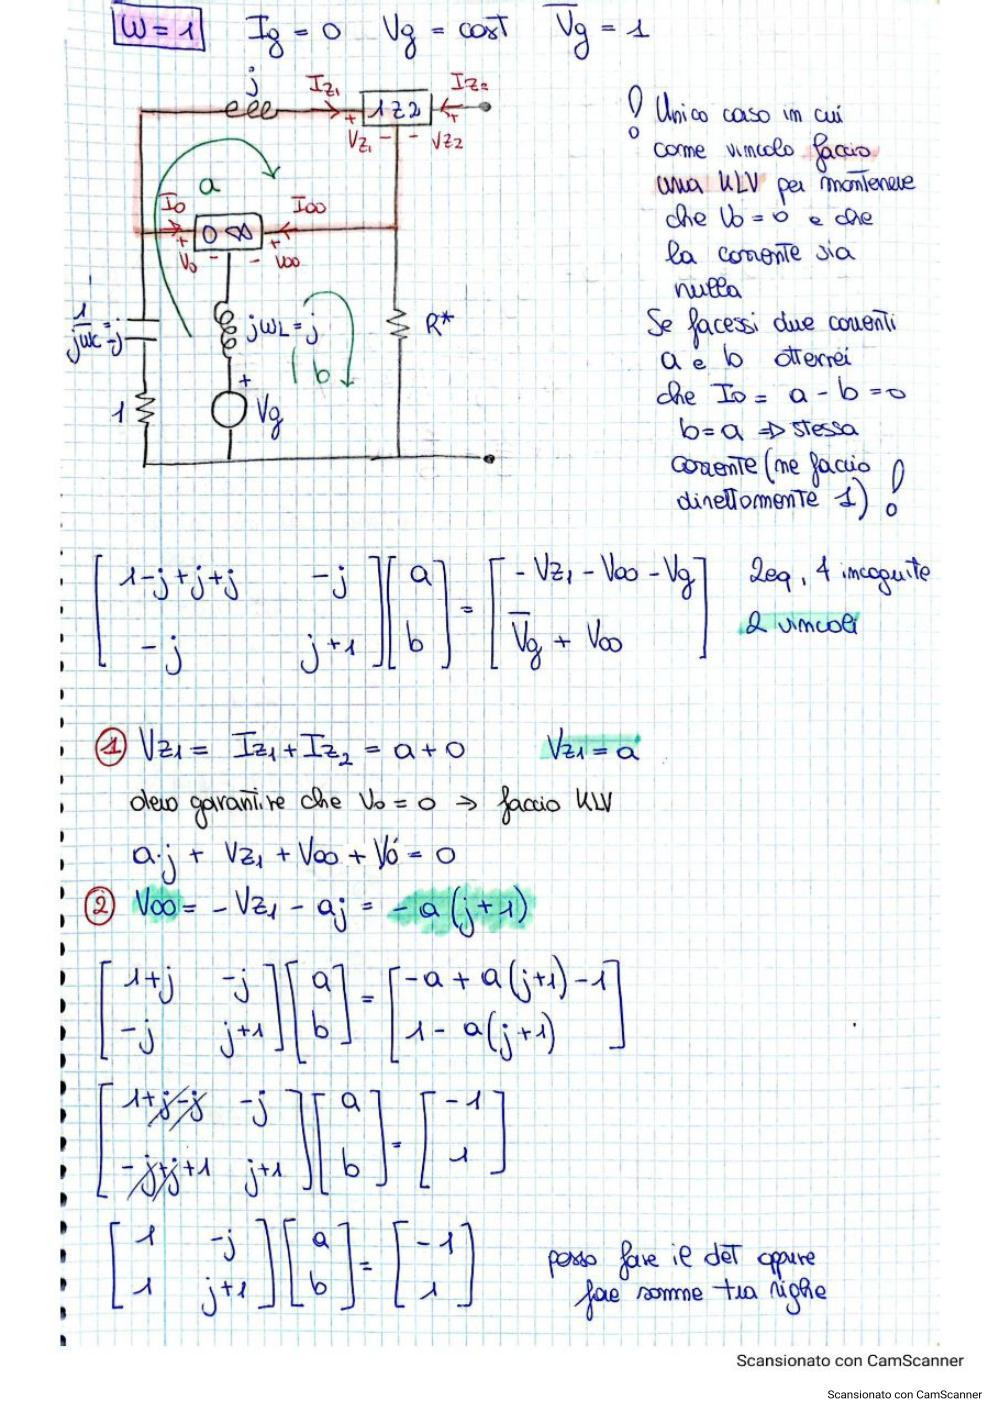 W=1 Ig = 0 Vg = cost V̅g = 1
j Iz1 Iz2
1 Z 2
+ Vz1 - - Vz2 +
a
I0 I∞
0 ∞
+ V0 - - V∞ +
1/jwc = -j
jωL = j
R*
b
1
+ Vg
! Unico caso in cui
come vincolo faccio
una KLV per mantenere
che V0 = 0 e che
la corrente sia
nulla
Se facessi due correnti
a e b otterrei
che I0 = a - b = 0
b = a ⇒ stessa
corrente (ne faccio
direttamente 1) !
[1-j+j+j -j] [a] = [- Vz1 - V∞ - Vg] 2eq, 4 incognite
[-j j+1] [b] [V̅g + V∞] 2 vincoli
① Vz1 = Iz1 + Iz2 = a + 0 Vz1 = a
devo garantire che V0 = 0 → faccio KLV
a·j + Vz1 + V∞ + V0 = 0
② V∞ = - Vz1 - aj = - a (j+1)
[1+j -j] [a] = [-a + a(j+1) - 1]
[-j j+1] [b] [1 - a(j+1)]
[1+j-j -j] [a] = [-1]
[-j+j+1 j+1] [b] [1]
[1 -j] [a] = [-1] posso fare il det oppure
[1 j+1] [b] [1] fae somme tra righe
Scansionato con CamScanner
Scansionato con CamScanner